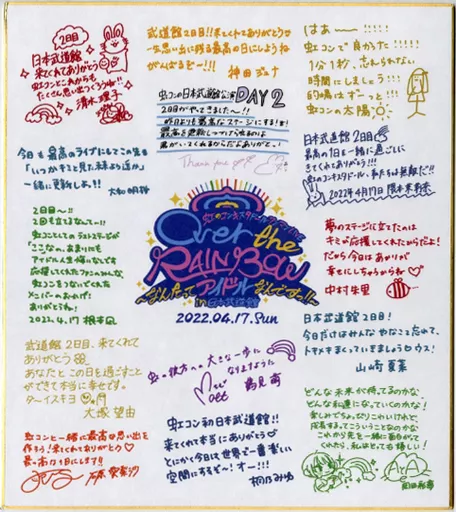 2日目
日本武道館
来てくれてありがとう
虹コンとこれからも
たくさん思い出つくろうね!!
清水理子
武道館2日目!!来てくれてありがとう
一生思い出に残る最高の日にしようね
がんばるぞー!!!
神田ジュナ
虹コンの日本武道館公演DAY2
2日目やってきましたー!!
昨日よりも最高なステージにするよ!
君がいてくれるからだよありがとう!
Thank you
はぁー
虹コンで良かった!!!!!
1分1秒、忘れられない
時間にしましょう!!!
的場はずーっと!!!
虹コンの太陽
今日も最高のライブにしてこの先も
「いつかキミと見た未来より遥か」
一緒に更新しよ!!
大和明桜
日本武道館2日目
最高の1日を一緒に過ごしに
きてくれてありがとう!!!
2022年4月17日 隈本茉莉奈
2日目〜!!
2日も立てるなんて…!!
アイドル人生悔いなしです
応援してくれたファンのみんな、
虹コンをつないでくれた
メンバーのおかげ!
ありがとうね!
2022.4.17 根本凪
虹のコンキスタドール
Over the
RAINBOW
〜なんたってアイドルなんでですっ!!〜
in 日本武道館
2022.04.17.Sun
夢のステージに立てたのは
キミが応援してくれたからだよ!
だから今日はあかりが
幸せにしちゃうからね♡
中村朱里
日本武道館2日目!
今日だけはみんな やなこと忘れて、
トキメキまくっていきましょうウス!
山崎夏菜
武道館2日目、来てくれて
ありがとう
あなたとこの日を過ごすことが
できて本当に幸せです。
ダーイスキヨ
大塚望由
虹の彼方への大きな一歩に
なりますように
鶴見萌
どんな未来が待ってるのかな、
どんな私達になっていくのかな!
楽しみでちょっぴりこわいけれど、
成長するってこういうことなのかな
これから先も一緒に面白がって
くれたら、私はとっても嬉しい!
虹コンと一緒に最高の思い出を
作ろう!来てくれてありがとう♡
最っ高な1日にします!!
石原愛梨沙
虹コン初日本武道館!!
来てくれて本当にありがとう♡
とにかく今日は世界で一番楽しい
空間にするぞー!オー!!!
桐乃みゆ